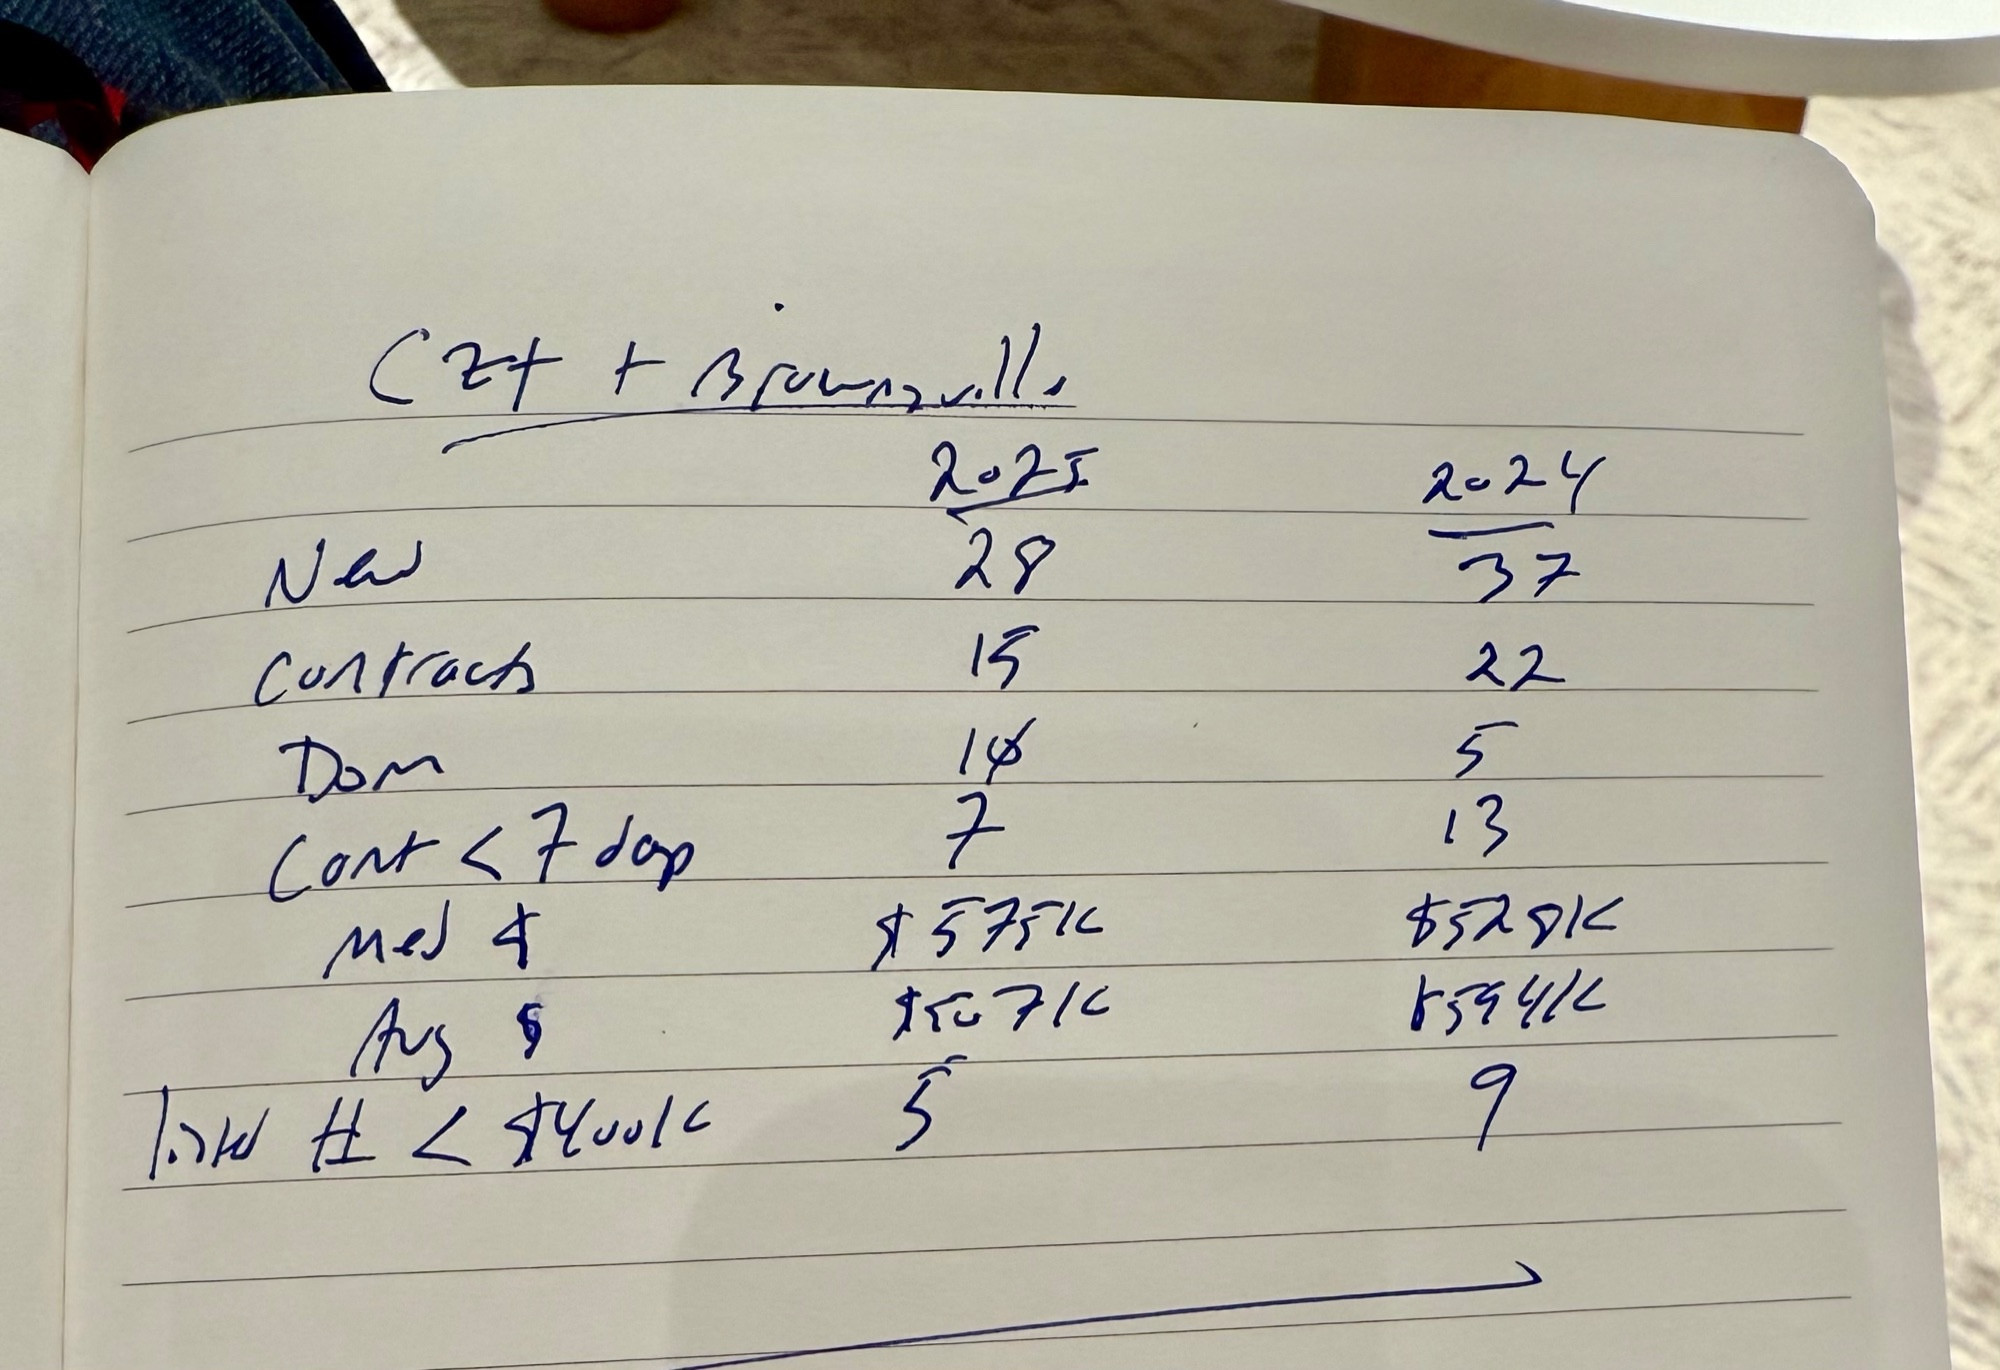 CZT + Brownsville
2025 2024
New 28 37
Contracts 15 22
Dom 10 5
Cont < 7 days 7 13
Med $ $575K $528K
Avg $ $507K $594K
# < $400K 5 9